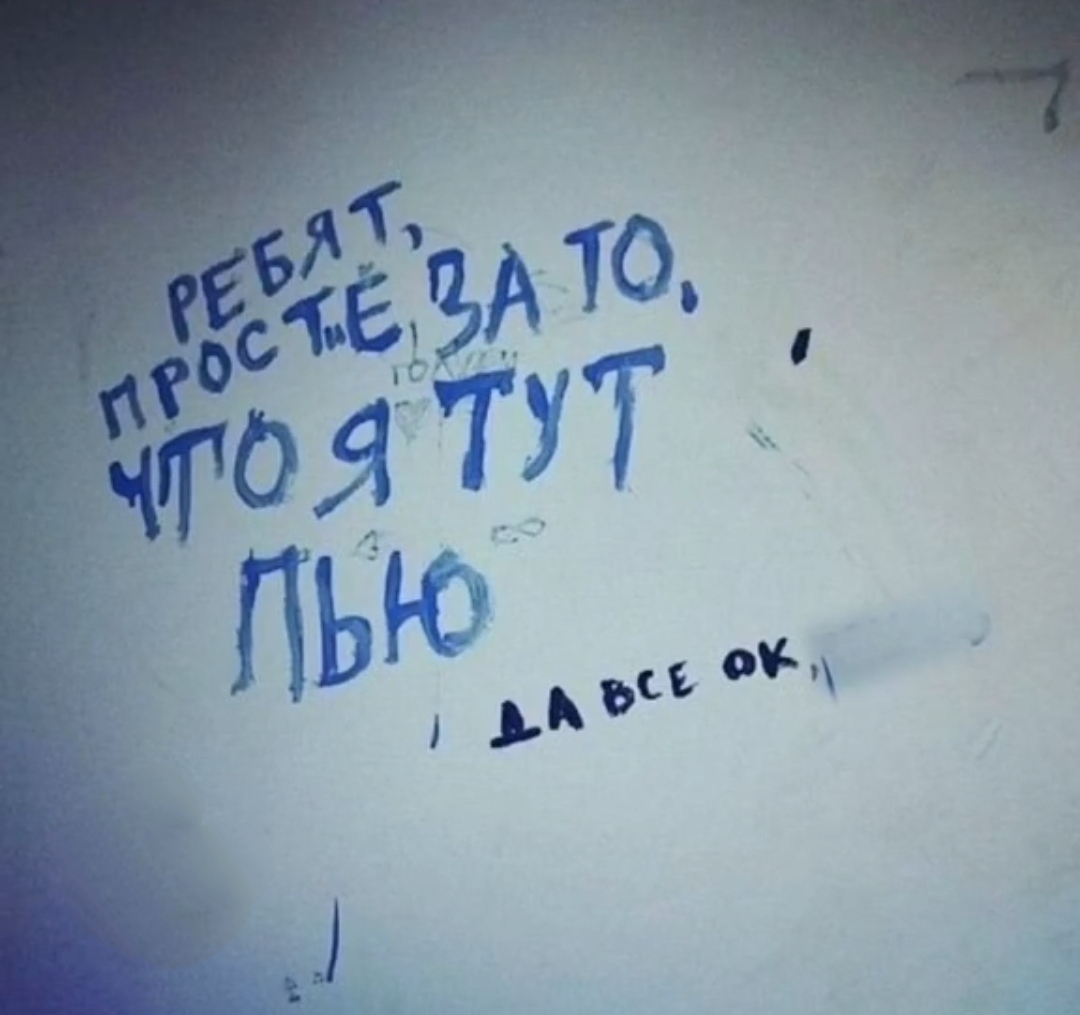 РЕБЯТ,
ПРОСТИТЕ ЗА ТО,
ЧТО Я ТУТ
ПЬЮ
ДА ВСЕ ОК,